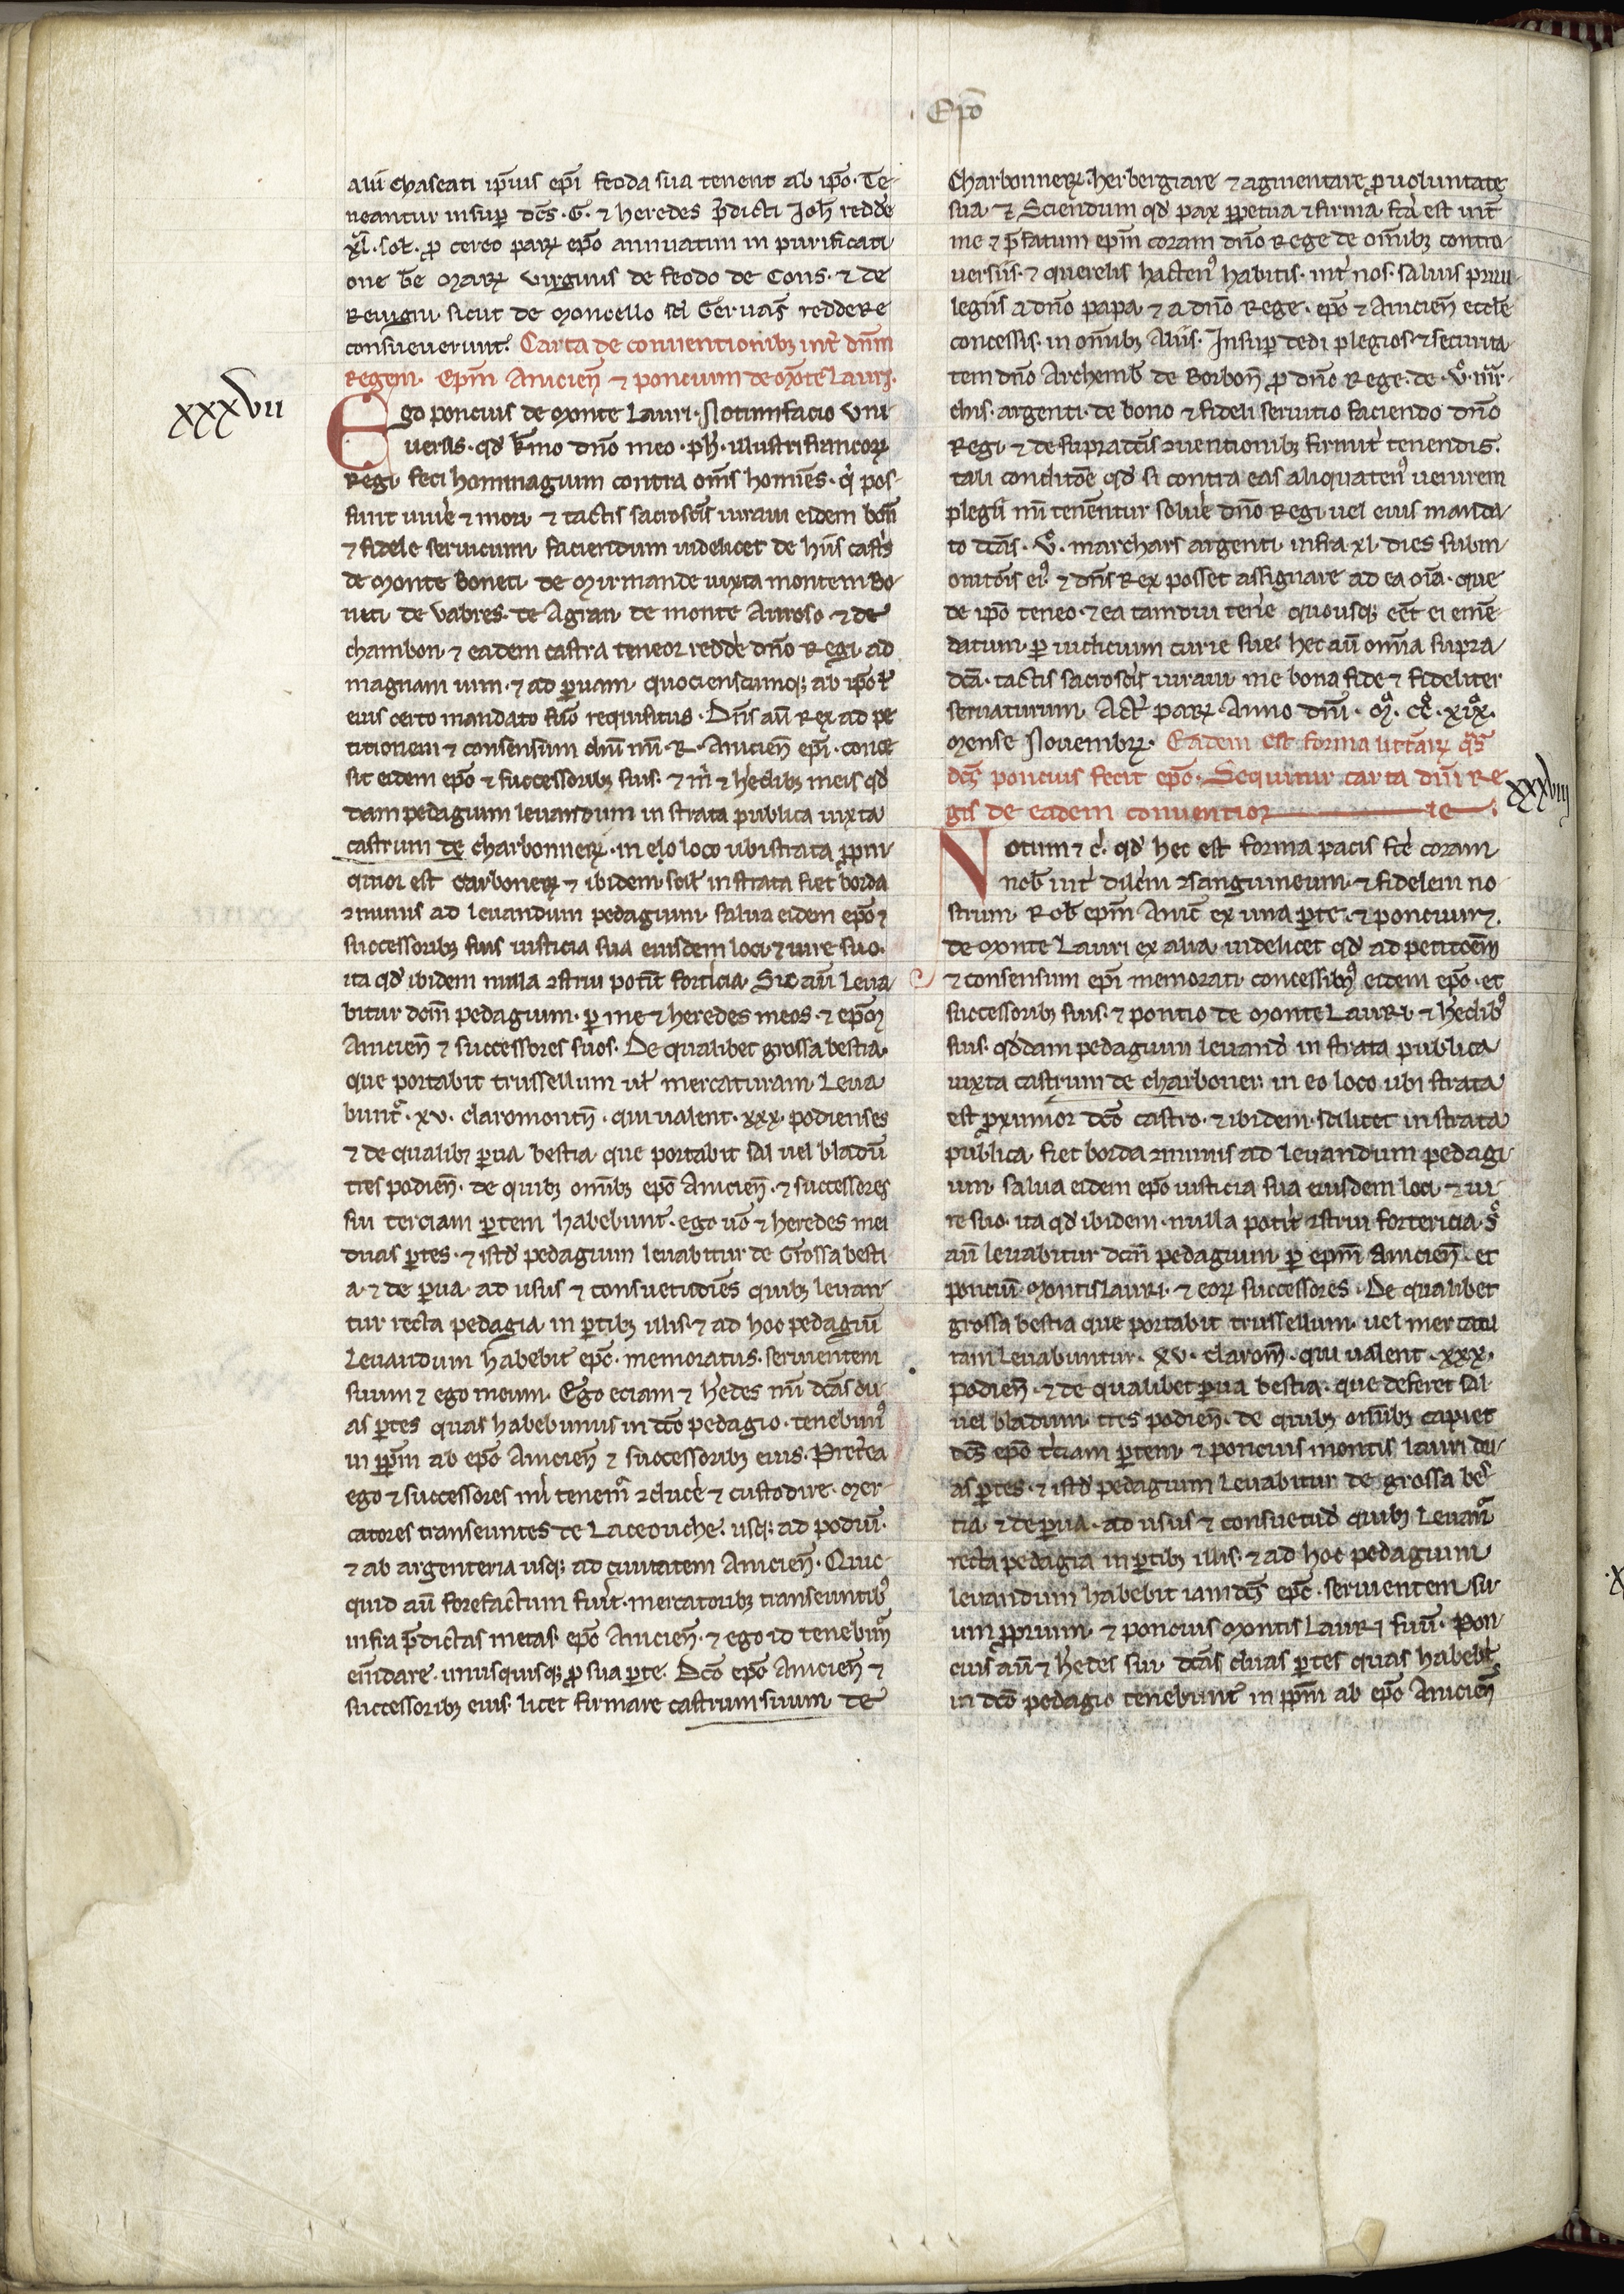 Epō
alii chaseati ip̄ius ep̄i feoda sua tenent ab ip̄o. Te-
neantur insup̄ dc̄s. G. ⁊ heredes p̄dicti Joh̄ redde
xl. sol. p̄ cereo parꝝ ep̄o annuatim in purificati
one bē Marꝝ virginis de feodo de Cons. ⁊ de
Reuigni sicut de Moncello sc̄i Geruas̄ reddere
consueuerunt. Carta de conuentionibꝫ int̄ dn̄m
Regem. Ep̄m Anicien̄ ⁊ poncium de mōte Lauri.
xxxvii
Ego poncius de Monte Lauri. Notum facio vni
uersis. qd̄ kmo dn̄o meo. ph̄. illustri francorꝝ
Regi feci hominagium contra om̄s homīes. q̇ pos-
sunt uiuēe ⁊ mori ⁊ tactis sacrosc̄is iuraui eidem bon̄
⁊ fidele seruicium faciendum uidelicet de hiis castis
de monte boneti. de Mirmande iuxta montem Bo-
neti. de vabres. de Agrain. de monte Auroso. ⁊ de
chambon. ⁊ eadem castra teneor redde dn̄o Regi. ad
magnam uim. ⁊ ad p̄uam. quocienscumqꝫ ab ip̄o ł
eius certo mandato fuo requisitus. Dn̄s au̅ Rex ad pe
titionem ⁊ consensum dn̄i mi. R. Anicien̄ ep̄i. conce
sit eidem ep̄o ⁊ successoribꝫ suis. ⁊ m̄ ⁊ h̄edibꝫ meis qd̄
dam pedagium leuandum in strata publica iuxta
castrum de charbonnerꝝ. in eo loco ubi strata ꝓpin
quior est carbonerꝝ ⁊ ibidem. scil̄ in strata fiet borda
ꝯmunis ad leuandum pedagium. salua eidem ep̄o ⁊
successoribꝫ suis iusticia sua eiusdem loci ⁊ iure suo.
ita qd̄ ibidem nulla ꝯstrui pot̄it forticia. Sic au̅ leua
bitur dc̄m pedagium. p̄ me ⁊ heredes meos. ⁊ ep̄om
Anicien̄ ⁊ successores suos. De qualibet grossa bestia.
que portabit trussellum ul̄ mercaturam. Leua
bunt͛. xv. claromontn̄. qui ualent. xxx. podienses
⁊ de qualibꝫ p̄ua bestia que portabit sal uel bladū
tres podien̄. de quibꝫ om̄ibꝫ ep̄c Anicien̄. ⁊ successores
sui terciam p̄tem habebunt. ego uo ⁊ heredes mei
duas p̄tes. ⁊ istd̄ pedagium leuabitur de Grossa besti
a. ⁊ de p̄ua. ad usus ⁊ consuetudīes quibꝫ leuan
tur recta pedagia in p̄tibꝫ illis. ⁊ ad hoc pedagiū
Leuandum habebit ep̄c. memoratus. seruientem
suum ⁊ ego meum. Ego eciam ⁊ h̄edes mi dc̄as du
as p̄tes quas habebimus in dc̄o pedagio. tenebim᷒
in ꝑpm̄ ab ep̄o Anicien̄ ⁊ successoribꝫ eius. Pret̄ea
ego ⁊ successores mi tenem͛ ꝯducēe ⁊ custodire. mer-
catores transeuntes de Laceouche. usqꝫ ad podiū.
⁊ ab argenteria usqꝫ ad ciuitatem Anicien̄. Quic-
quid au̅ forefactum fuīt. mercatoribꝫ transeuntibꝫ
infra p̄dictas metas. ep̄c Anicien̄. ⁊ ego id tenebim͛
em̄dare. unusquisqꝫ ꝓ sua p̄te. Dc̄o ep̄o Anicien̄ ⁊
successoribꝫ eius. licet firmare castrum suum de
Charbonnerꝝ. herbergiare ⁊ agmentare ꝓ uoluntate
sua. ⁊ Sciendum qd̄ pax ꝑpetua ⁊ firma fc̄a est int̄
me ⁊ p̄fatum ep̄m coram dn̄o Rege de om̄ibꝫ contro-
uersiis. ⁊ querelis hacten᷒ habitis. int̄ nos. saluis priui-
legiis a dn̄o papa ⁊ a dn̄o Rege. ep̄o ⁊ Anicien̄ eccl̄e
concessis. in om̄ibꝫ Aliis. Insup̄ dedi plegios ⁊ securita
tem dn̄o Archemb̄ de Borbon̄ ꝓ dn̄o Rege. de. v. mr̄-
chis. argenti. de bono ⁊ fideli seruitio faciendo dn̄o
Regi ⁊ de supradc̄is ꝯuentionibꝫ firmit̄ tenendis.
tali conditōe qd̄ si contra eas aliquaten᷒ uenirem
plegii mi tenentur soluēe dn̄o Regi uel eius manda-
to dc̄as. v. marchars argenti. infra xl. dies subm
onitōis ei᷒. ⁊ dn̄s Rex posset assignare ad ea oīa. que
de ip̄o teneo. ⁊ ea tamdiu tenēe quousqꝫ eēt ei emē
datum. p̄ iudicium curie sue. hec au̅ omīa supra
dc̄a. tactis sacrosc̄is iuraui me bona fide ⁊ fideliter
seruaturum. Act̄ parꝝ. Anno dn̄i. M. cc. xix.
Mense Nouembrꝝ. Eadem est forma litt̄arꝝ q̄s
dc̄s poncius fecit ep̄o. Sequitur carta dn̄i Re
xxxviii
gis de eadem conuentior — ie.
Notum ⁊ c. qd̄ hec est forma pacis fc̄e coram
nob̄ int̄ dilc̄m ꝯsanguineum. ⁊ fidelem no
strum. Rob̄ ep̄m Anic̄ ex una p̄te. ⁊ poncium.
de Monte Lauri ex alia. uidelicet qd̄ ad petitōem
⁊ consensum ep̄i memorati. concessim᷒ eidem ep̄o. et
successoribꝫ suis. ⁊ pontio de Monte Lauri. ⁊ h̄edibꝫ
suis. qd̄dam pedagium leuand̄ in strata publica
iuxta castrum de charboner. in eo loco ubi strata
est ꝓximior dc̄o castro. ⁊ ibidem. scilicet in strata
publica. fiet borda ꝯmunis ad leuandum pedagi
um. salua eidem ep̄o iusticia sua eiusdem loci. ⁊ iu-
re suo. ita qd̄ ibidem. nulla pot̄it ꝯstrui fortericia. S͛
au̅ leuabitur dc̄m pedagium. p̄ ep̄m Anicien̄. et
ponciū. Montis Lauri. ⁊ eorꝝ successores. De qualibet
grossa bestia que portabit trussellum. uel mercatu
ram Leuabuntur. xv. clarom̄. qui ualent. xxx.
podien̄. ⁊ de qualibet p̄ua bestia. que deferet sal
uel bladum. tres podien̄. de quibꝫ om̄ibꝫ capiet
dc̄s ep̄c t̄ciam p̄tem. ⁊ poncius montis lauri du-
as p̄tes. ⁊ istd̄ pedagium Leuabitur de grossa bes-
tia. ⁊ de p̄ua. ad usus ⁊ consuetud̄ quibꝫ Leuan͛
recta pedagia in p̄tibꝫ illis. ⁊ ad hoc pedagium
leuandum habebit iam dc̄s ep̄c. seruientem su-
um ꝓprium. ⁊ poncius Montis Lauri suū. Pon-
cius au̅ ⁊ h̄edes sui. dc̄as duas p̄tes quas habebt̄
in dc̄o pedagio tenebunt in ꝑpm̄ ab ep̄o Anicien̄